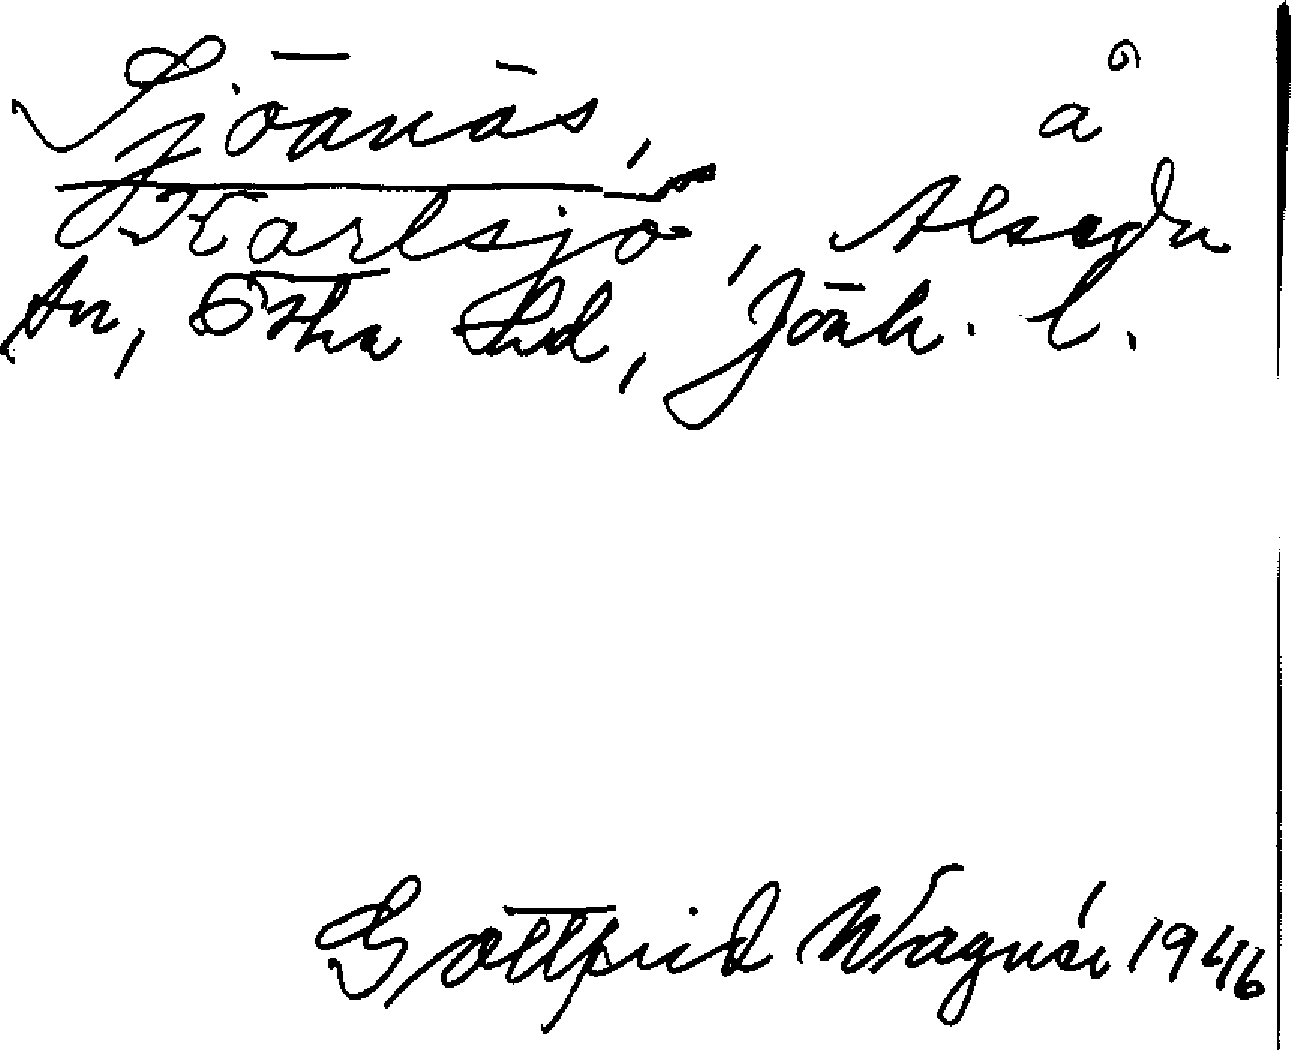 Sjöänäs, å
Karlsjö, Alseda
sn, Östra hd, Jönk. l.
Gottfrid Wagnér 1946